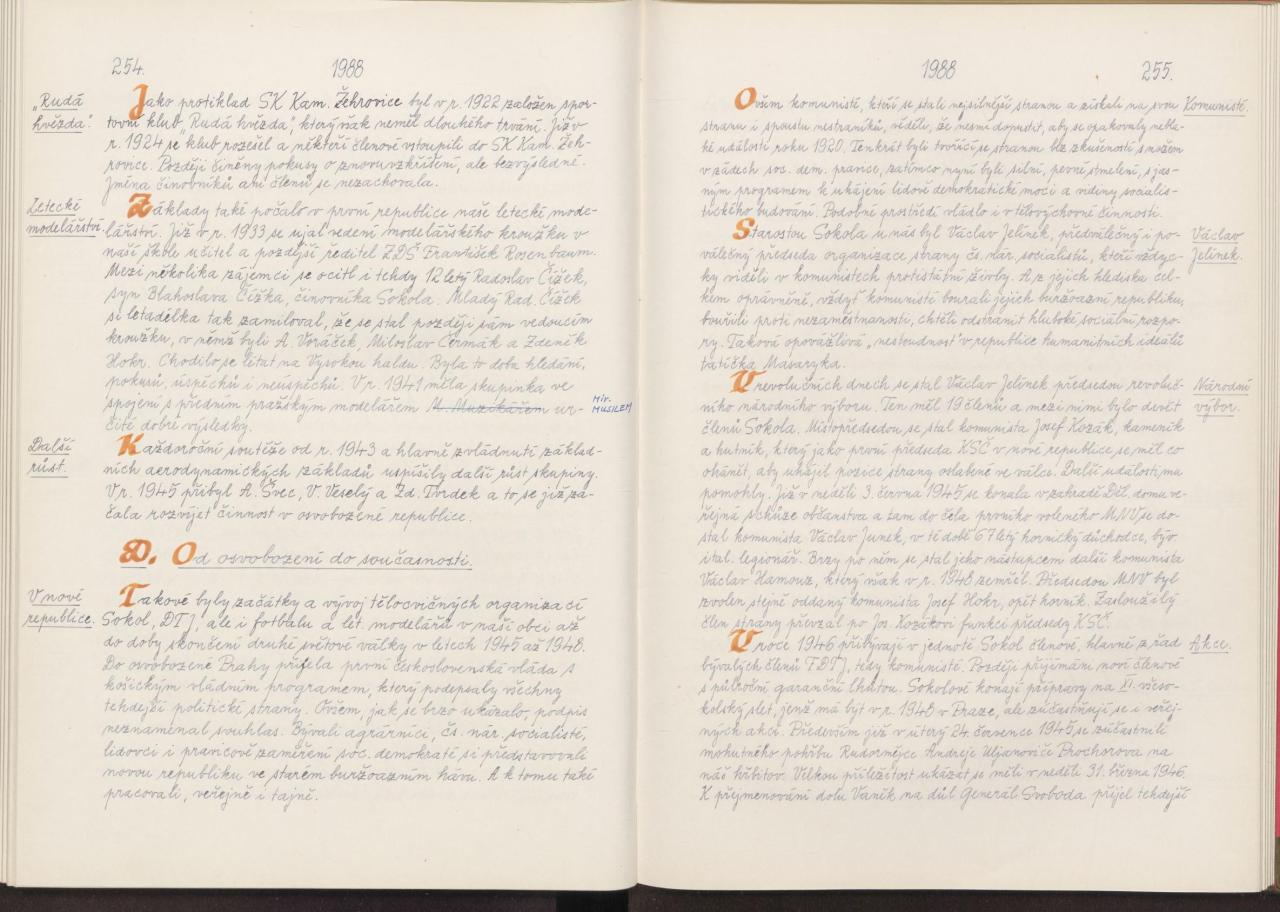 254.
1988
„Rudá
hvězda".
Jako protiklad SK Kam. Žehrovice byl v r. 1922 založen spor-
tovní klub „Rudá hvězda", který však neměl dlouhého trvání. Již v
r. 1924 se klub rozešel a někteří členové vstoupili do SK Kam. Žeh-
rovice. Později činěny pokusy o znovuvzkříšení, ale bezvýsledné.
Jména činovníků ani členů se nezachovala.
Letecké
modelářství.
Základy také počalo v první republice naše letecké mode-
lářství. Již v r. 1933 se ujal vedení modelářského kroužku v
naší škole učitel a pozdější ředitel ZDŠ František Rosenbaum.
Mezi několika zájemci se ocitl i tehdy 12 letý Radoslav Čížek,
syn Blahoslava Čížka, činovníka Sokola. Mladý Rad. Čížek
si letadélka tak zamiloval, že se stal později sám vedoucím
kroužku, v němž byli A. Voráček, Miloslav Čermák a Zdeněk
Hokr. Chodilo se létat na Vysokou haldu. Byla to doba hledání,
pokusů, úspěchů i neúspěchů. V r. 1941 měla skupinka ve
spojení s předním pražským modelářem M. Muzikářem ur-
Mir.
MUSILEM
čité dobré výsledky.
Další
růst.
Každoroční soutěže od r. 1943 a hlavně zvládnutí základ-
ních aerodynamických základů uspíšily další růst skupiny.
V r. 1945 přibyl A. Švec, V. Veselý a Zd. Tvrdek a to se již za-
čala rozvíjet činnost v osvobozené republice.
D. Od osvobození do současnosti.
V nové
republice.
Takové byly začátky a vývoj tělocvičných organizací
Sokol, DTJ, ale i fotbalu a let. modelářů v naší obci až
do doby skončení druhé světové války v letech 1945 až 1948.
Do osvobozené Prahy přijela první československá vláda s
košickým vládním programem, který podepsaly všechny
tehdejší politické strany. Ovšem, jak se brzo ukázalo, podpis
neznamenal souhlas. Bývalí agrárníci, čs. nár. socialisté,
lidovci i pravicově zaměření soc. demokraté si představovali
novou republiku ve starém buržoazním hávu. A k tomu také
pracovali, veřejně i tajně.
1988
255.
Ovšem komunisté, kteří se stali nejsilnější stranou a získali na svou
Komunisté.
stranu i spoustu nestraníků, věděli, že nesmí dopustit, aby se opakovaly neblа-
hé události roku 1920. Tenkrát byli tvořící se stranou bez zkušeností s nožem
v zádech soc. dem. pravice, zatímco nyní byli silní, pevně stmelení, s jas-
ným programem k uhájení lidově demokratické moci a vidinу socialis-
tického budování. Podobné prostředí vládlo i v tělovýchovné činnosti.
Starostou Sokola u nás byl Václav Jelínek, předválečný i po-
Václav
Jelínek.
válečný předseda organizace strany čs. nár. socialistů, kteří vždyc-
ky viděli v komunistech protistátní živly. A z jejich hlediska cel-
kem oprávněně, vždyť komunisté bourali jejich buržoazní republiku,
bouřili proti nezaměstnanosti, chtěli odstranit hluboké sociální rozpo-
ry. Taková opovážlivá „nestoudnost" v republice humanitních ideálů
tatíčka Masaryka.
V revolučních dnech se stal Václav Jelínek předsedou revoluč-
Národní
výbor.
ního národního výboru. Ten měl 19 členů a mezi nimi bylo devět
členů Sokola. Místopředsedou se stal komunista Josef Kozák, kameník
a hutník, který jako první předseda KSČ v nové republice se měl co
ohánět, aby uhájil pozice strany oslabené ve válce. Další události mu
pomohly. Již v neděli 3. června 1945 se konala v zahradě Děl. domu ve-
řejná schůze občanstva a tam do čela prvního voleného MNV se do-
stal komunista Václav Junek, v té době 67 letý hornický důchodce, býv.
ital. legionář. Brzy po něm se stal jeho nástupcem další komunista
Václav Hamouz, který však v r. 1948 zemřel. Předsedou MNV byl
zvolen stejně oddaný komunista Josef Hokr, opět horník. Zasloužilý
člen strany převzal po Jos. Kozákovi funkci předsedy KSČ.
V roce 1946 přibývají v jednotě Sokol členové, hlavně z řad
Akce.
bývalých členů FDTJ, tedy komunisté. Později přijímáni noví členové
s půlroční garanční lhůtou. Sokolové konají přípravy na XI. všeso-
kolský slet, jenž má být v r. 1948 v Praze, ale zúčastňují se i veřej-
ných akcí. Především již v úterý 24. července 1945 se zúčastnili
mohutného pohřbu Rudoarmějce Andreje Uljanoviče Prochorova na
náš hřbitov. Velkou příležitost ukázat se měli v neděli 31. března 1946.
K přejmenování dolu Vaněk na důl Generál Svoboda přijel tehdejší